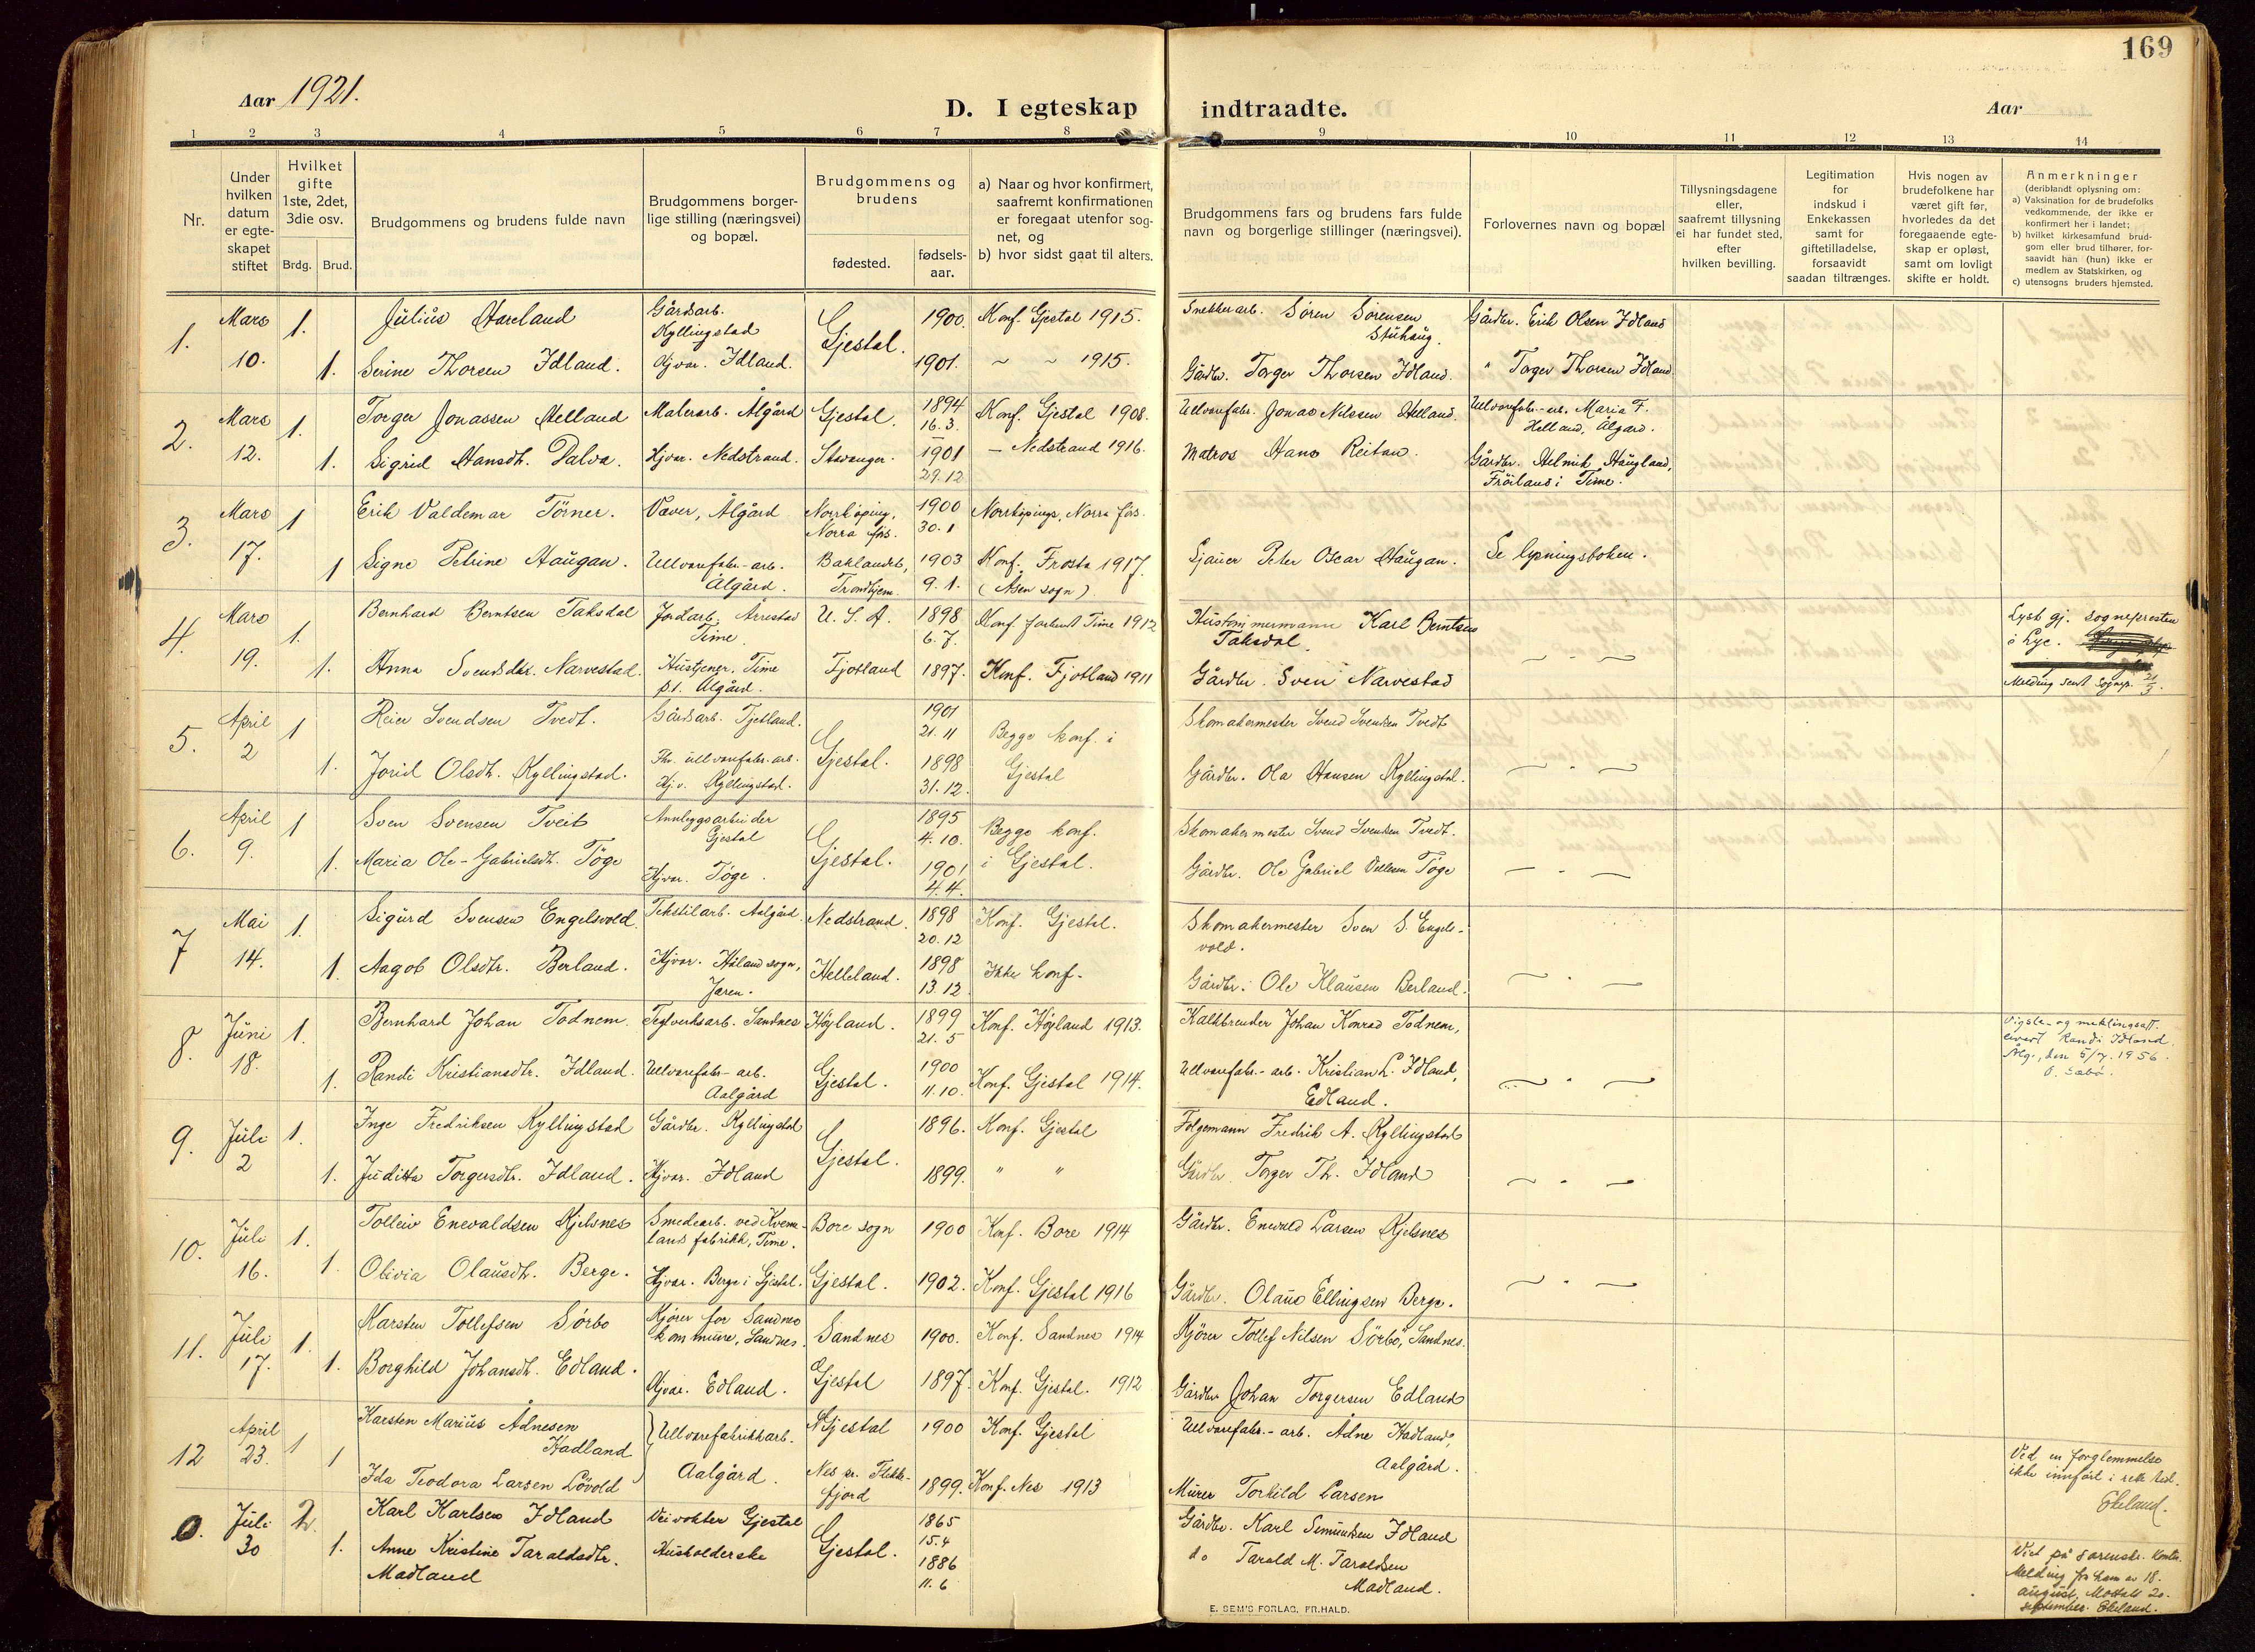 169
Aar 1921.
D. I egteskap indtraadte.
Aar
1 2 3 4 5 6 7 8 9 10 11 12 13 14
Nr.
Under hvilken datum er egteskapet stiftet
Hvilket gifte 1ste, 2det, 3die osv.
Brdg. Brud.
Brudgommens og brudens fulde navn
Brudgommens borgerlige stilling (næringsvei) og bopæl.
Brudgommens og brudens
fødested.
fødselsaar.
a) Naar og hvor konfirmert, saafremt konfirmationen er foregaat utenfor sognet, og
b) hvor sidst gaat til alters.
Brudgommens fars og brudens fars fulde navn og borgerlige stillinger (næringsvei).
Forlovernes navn og bopæl
Tillysningsdagene eller, saafremt tillysning ei har fundet sted, efter hvilken bevilling.
Legitimation for indskud i Enkekassen samt for giftetilladelse, forsaavidt saadan tiltrænges.
Hvis nogen av brudefolkene har været gift før, hvorledes da det foregaaende egteskap er opløst, samt om lovligt skifte er holdt.
Anmerkninger
(deriblandt oplysning om:
a) Vaksination for de brudefolks vedkommende, der ikke er konfirmert her i landet;
b) hvilket kirkesamfund brudgom eller brud tilhører, forsaavidt han (hun) ikke er medlem av Statskirken, og
c) utensogns bruders hjemsted.
1. Mars 10. 1. Julius Hareland Gårdsarb. Kyllingstad Gjestal. 1900. Konf. Gjestal 1915. Snekkerarb. Sören Sörensen Stuhaug. Gårdbr. Erik Olsen Idland
1. Serine Thorsen Idland. Hjvær. Idland. 1901. ~ ~ 1915. Gårdbr. Torger Thorsen Idland. " Torger Thorsen Idland
2. Mars 12. 1. Torger Jonassen Helland Malerarb. Ålgård Gjestal. 1894 16.3. Konf. Gjestal 1908. Ullvarefabr. Jonas Nilssen Helland. Ullvarefabr.-arb. Maria F. Helland, Ålgård.
1. Sigrid Hansdtr. Dalva. Hjvær. Nedstrand. Stavanger. 1901 29.12 — Nedstrand 1916. Matros Hans Reitan. Gårdbr. Helmik Haugland, Fröiland i Time.
3. Mars 17. 1 Erik Valdemar Törner. Væver, Ålgård Norrköping, Norra förs. 1900 30.1 Norrköpings, Norra förs.
1 Signe Petrine Haugan. Ullvarefabr.-arb. Ålgård. Baklandet, Trondhjem. 1903 9.1. Konf. Frosta 1917. (Åsen sogn) Sjauer Peter Oscar Haugan. Se lysningsboken.
4. Mars 19. 1. Bernhard Berntsen Taksdal Jordarb. Årrestad Time. U. S. A. 1898 6.7. Konf. Time 1912 Hustömmermann Karl Berntsen Taksdal.
1. Anna Svendsdtr. Narvestad. Hustjener. Time p.t. Ålgård. Fjotland 1897. Konf. Fjotland 1911 Gårdbr. Sven Narvestad — " —
Lyst gj. sognepresten i Lye.
Melding sent sognepr. 21/3.
5. April 2 1 Reier Svendsen Tvedt. Gårdsarb. Tjetland. Gjestal. 1901 21.11 Begge konf. i Gjestal Skomakermester Svend Svendsen Tvedt
1. Jorid Olsdtr. Kyllingstad. Fhv. ullvarefabr.arb. Hj.v. Kyllingstad. 1898 31.12. Gårdbr. Ola Hansen Kyllingstad. — " —
6. April 9. 1 Sven Svensen Tveit Annleggsarbeider Gjestal Gjestal. 1895 4.10. Begge konf. i Gjestal. Skomakermester Svend Svendsen Tvedt.
1. Maria Ole-Gabrielsdtr. Töge Hjvær. Töge. 1901 4.4. Gårdbr. Ole Gabriel Töge — " —
7 Mai 14. 1. Sigurd Svensen Engelsvold Tekstilarb. Aalgård. Nedstrand. 1898 20.12 Konf. Gjestal. Skomakermester Sven S. Engelsvold.
1. Aagot Olsdtr. Berland. Hjvær. Håland sogn, Jæren. Helleland. 1898 13.12 Ikke konf. Gårdbr. Ole Klausen Berland. — " —
8. Juni 18. 1. Bernhard Johan Todnem. Teglverksarb. Sandnes Höyland. 1899 21.5 Konf. Höyland 1913. Kalkbrender Johan Konrad Todnem,
1. Randi Kristiansdtr. Idland. Ullvarefabr.-arb. Aalgård Gjestal. 1900 11.10. Konf. Gjestal 1914. Ullvarefabr.-arb. Kristian L. Idland, Edland. — " —
Vigsle- og meklingsatt. levert Randi Idland. Ålg., den 5/7. 1956. O. Sæbö.
9. Juli 2 1. Inge Fredriksen Kyllingstad Gårdbr. Kyllingstad Gjestal. 1896. Konf. Gjestal Folgemann Fredrik A. Kyllingstad
1. Juditta Torgersdtr. Idland. Hjvær. Idland 1899. " " Gårdbr. Torger Th. Idland — " —
10. Juli 16. 1. Tolleiv Enevaldsen Kjelsnes Smedearb. ved Kvernelands fabrikk, Time. Bore sogn 1900 Konf. Bore 1914 Gårdbr. Enevald Larsen Kjelsnes
1. Olivia Olausdtr. Berge. Hjvær. Berge i Gjestal. Gjestal. 1902. Konf. Gjestal 1916 Gårdbr. Olaus Ellingsen Berge. — " —
11. Juli 17. 1. Karsten Tollefsen Sörbö Kjörer for Sandnes kommune, Sandnes. Sandnes 1900. Konf. Sandnes 1914 Kjörer Tollef Nilsen Sörbö, Sandnes.
1. Borghild Johansdtr. Edland. Hjvær. Edland. Gjestal 1897. Konf. Gjestal. 1912 Gårdbr. Johan Torgersen Edland
12 April 23. 1 Karsten Marius Ådnesen Hadland Ullvarefabrikkarb. Aalgård. Gjestal 1900 Konf. Gjestal Ullvarefabr.-arb. Ådne Hadland, Aalgård.
1 Ida Teodora Larsen Lövold Nes pr. Flekkefjord 1899. Konf. Nes 1913 Murer Torkild Larsen
Ved en forglemmelse ikke innfört i rett tid. Ekeland.
0. Juli 30 2. Karl Karlsen Idland Veivokter Gjestal Gjestal. 1865 15.4 Gårdbr. Karl Simunsen Idland
1. Anne Kristine Taraldsdtr. Madland Husholderske 1886 11.6 do Tarald M. Taraldsen Madland.
Viet på sorenskr. kontor. Melding fra ham av 18. august. Mottatt 20. september. Ekeland.
E. SEM'S FORLAG, FR.HALD.